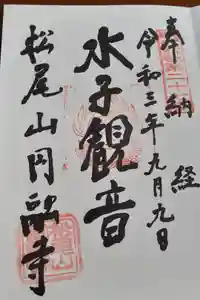 奉納経
令和三年九月九日
水子観音
松尾山円融寺